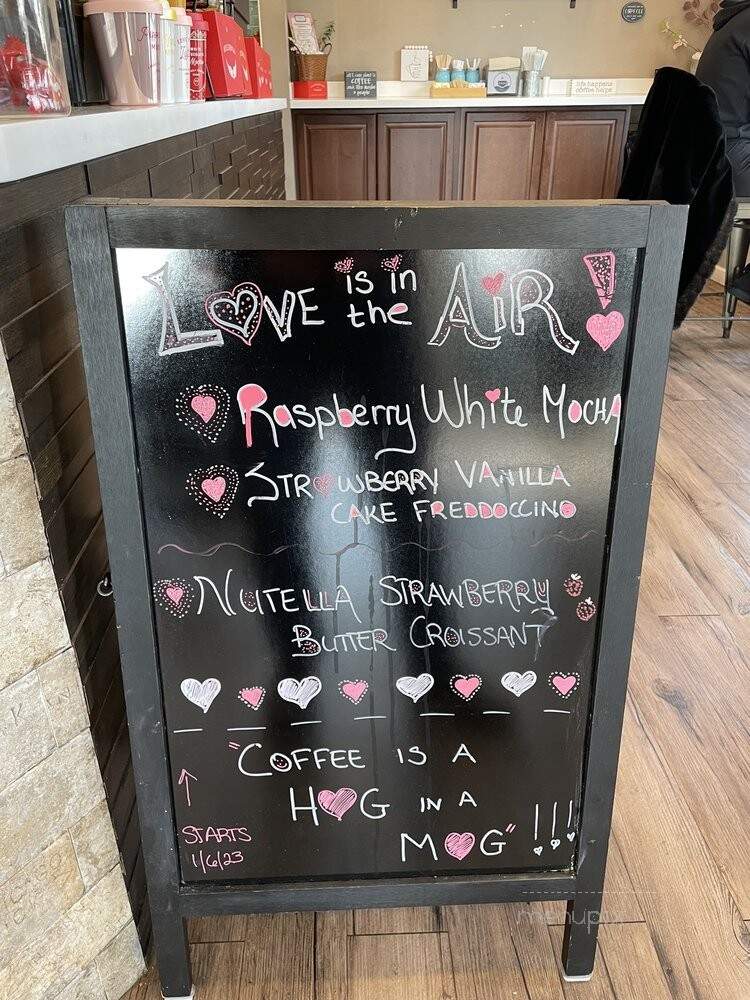 LOVE is in the AiR!
Raspberry White MOCHA
STRAWBERRY VANILLA
CAKE FREDDOCCINO
NUTELLA STRAWBERRY
BUTTER CROISSANT
"COFFEE IS A
HUG IN A
MUG" !!!
STARTS
1/6/23